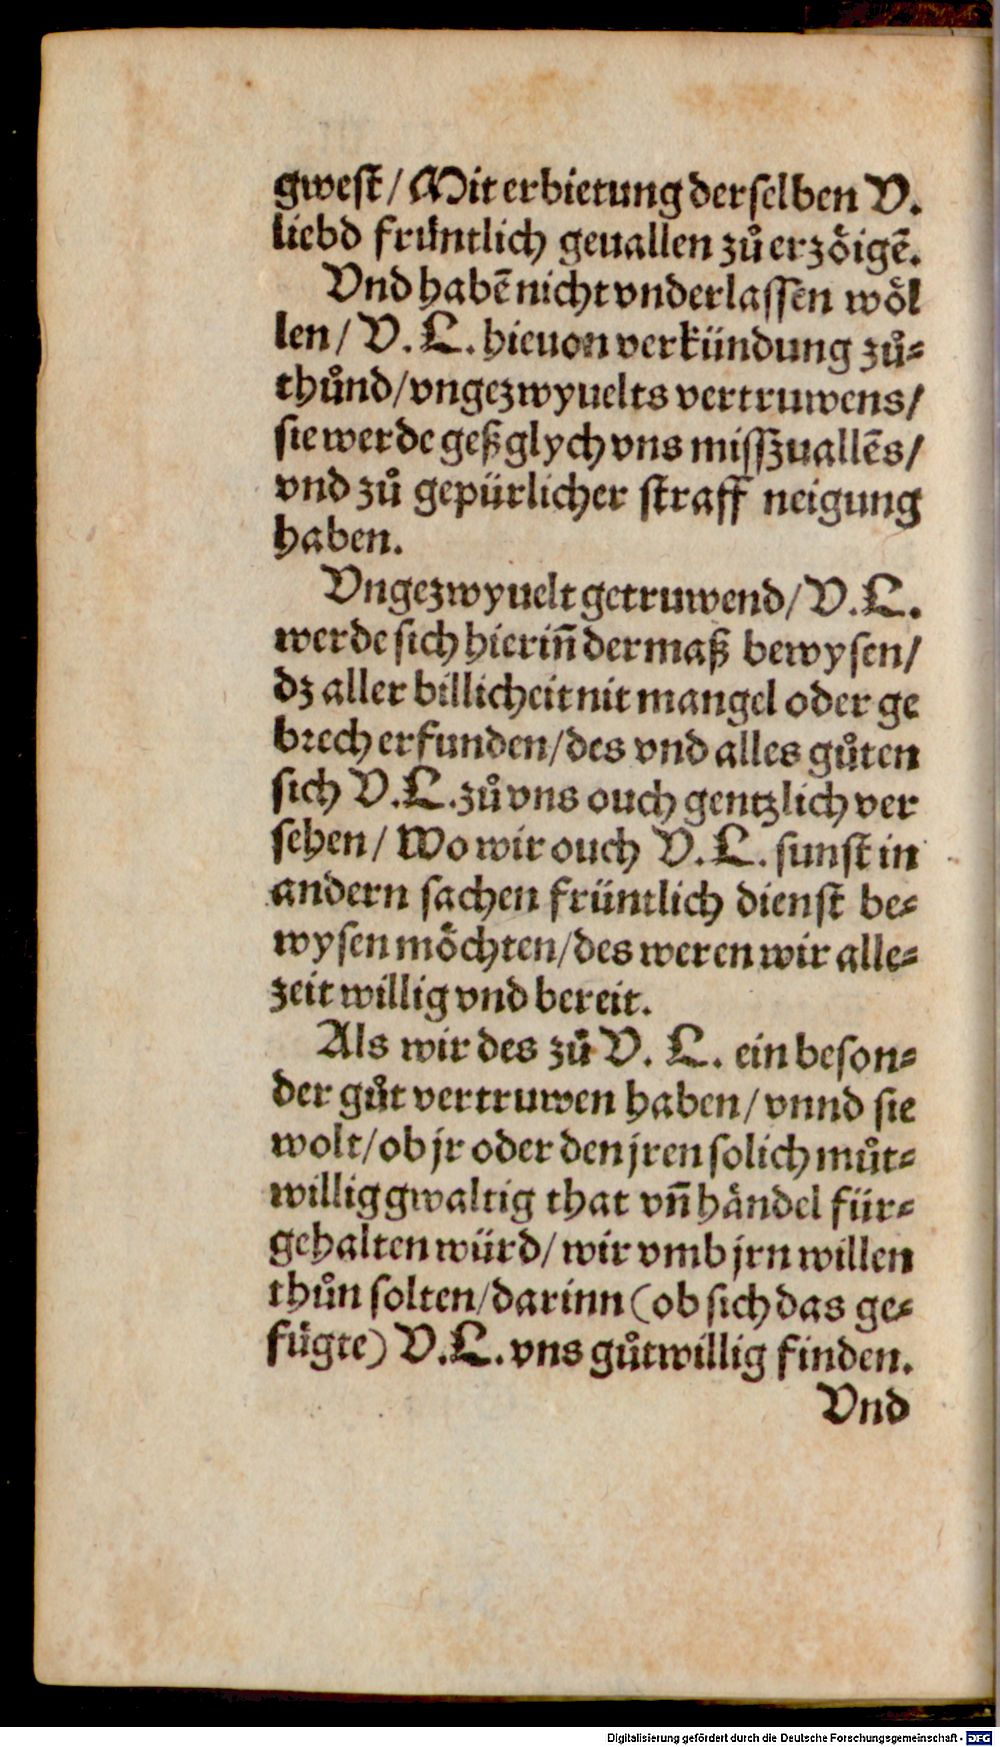 gwest / Mit erbietung derselben V.
liebd früntlich geuallen zů erzöigē.
Vnd habē nicht vnderlassen wöl
len / V. L. hieuon verkündung zů-
thůnd / vngezwyuelts vertruwens /
sie werde geß glych vns misszuallēs /
vnd zů gepürlicher straff neigung
haben.
Vngezwyuelt getruwend / V. L.
werde sich hierin̄ dermaß bewysen /
dz aller billicheit nit mangel oder ge
brech erfunden / des vnd alles gůten
sich V. L. zů vns ouch gentzlich ver
sehen / Wo wir ouch V. L. sunst in
andern sachen früntlich dienst be-
wysen möchten / des weren wir alle-
zeit willig vnd bereit.
Als wir des zů V. L. ein beson-
der gůt vertruwen haben / vnnd sie
wolt / ob jr oder den jren solich můt-
willig gwaltig that vn̄ händel für-
gehalten würd / wir vmb jrn willen
thůn solten / darinn (ob sich das ge-
fügte) V. L. vns gůtwillig finden.
Vnd
Digitalisierung gefördert durch die Deutsche Forschungsgemeinschaft - DFG